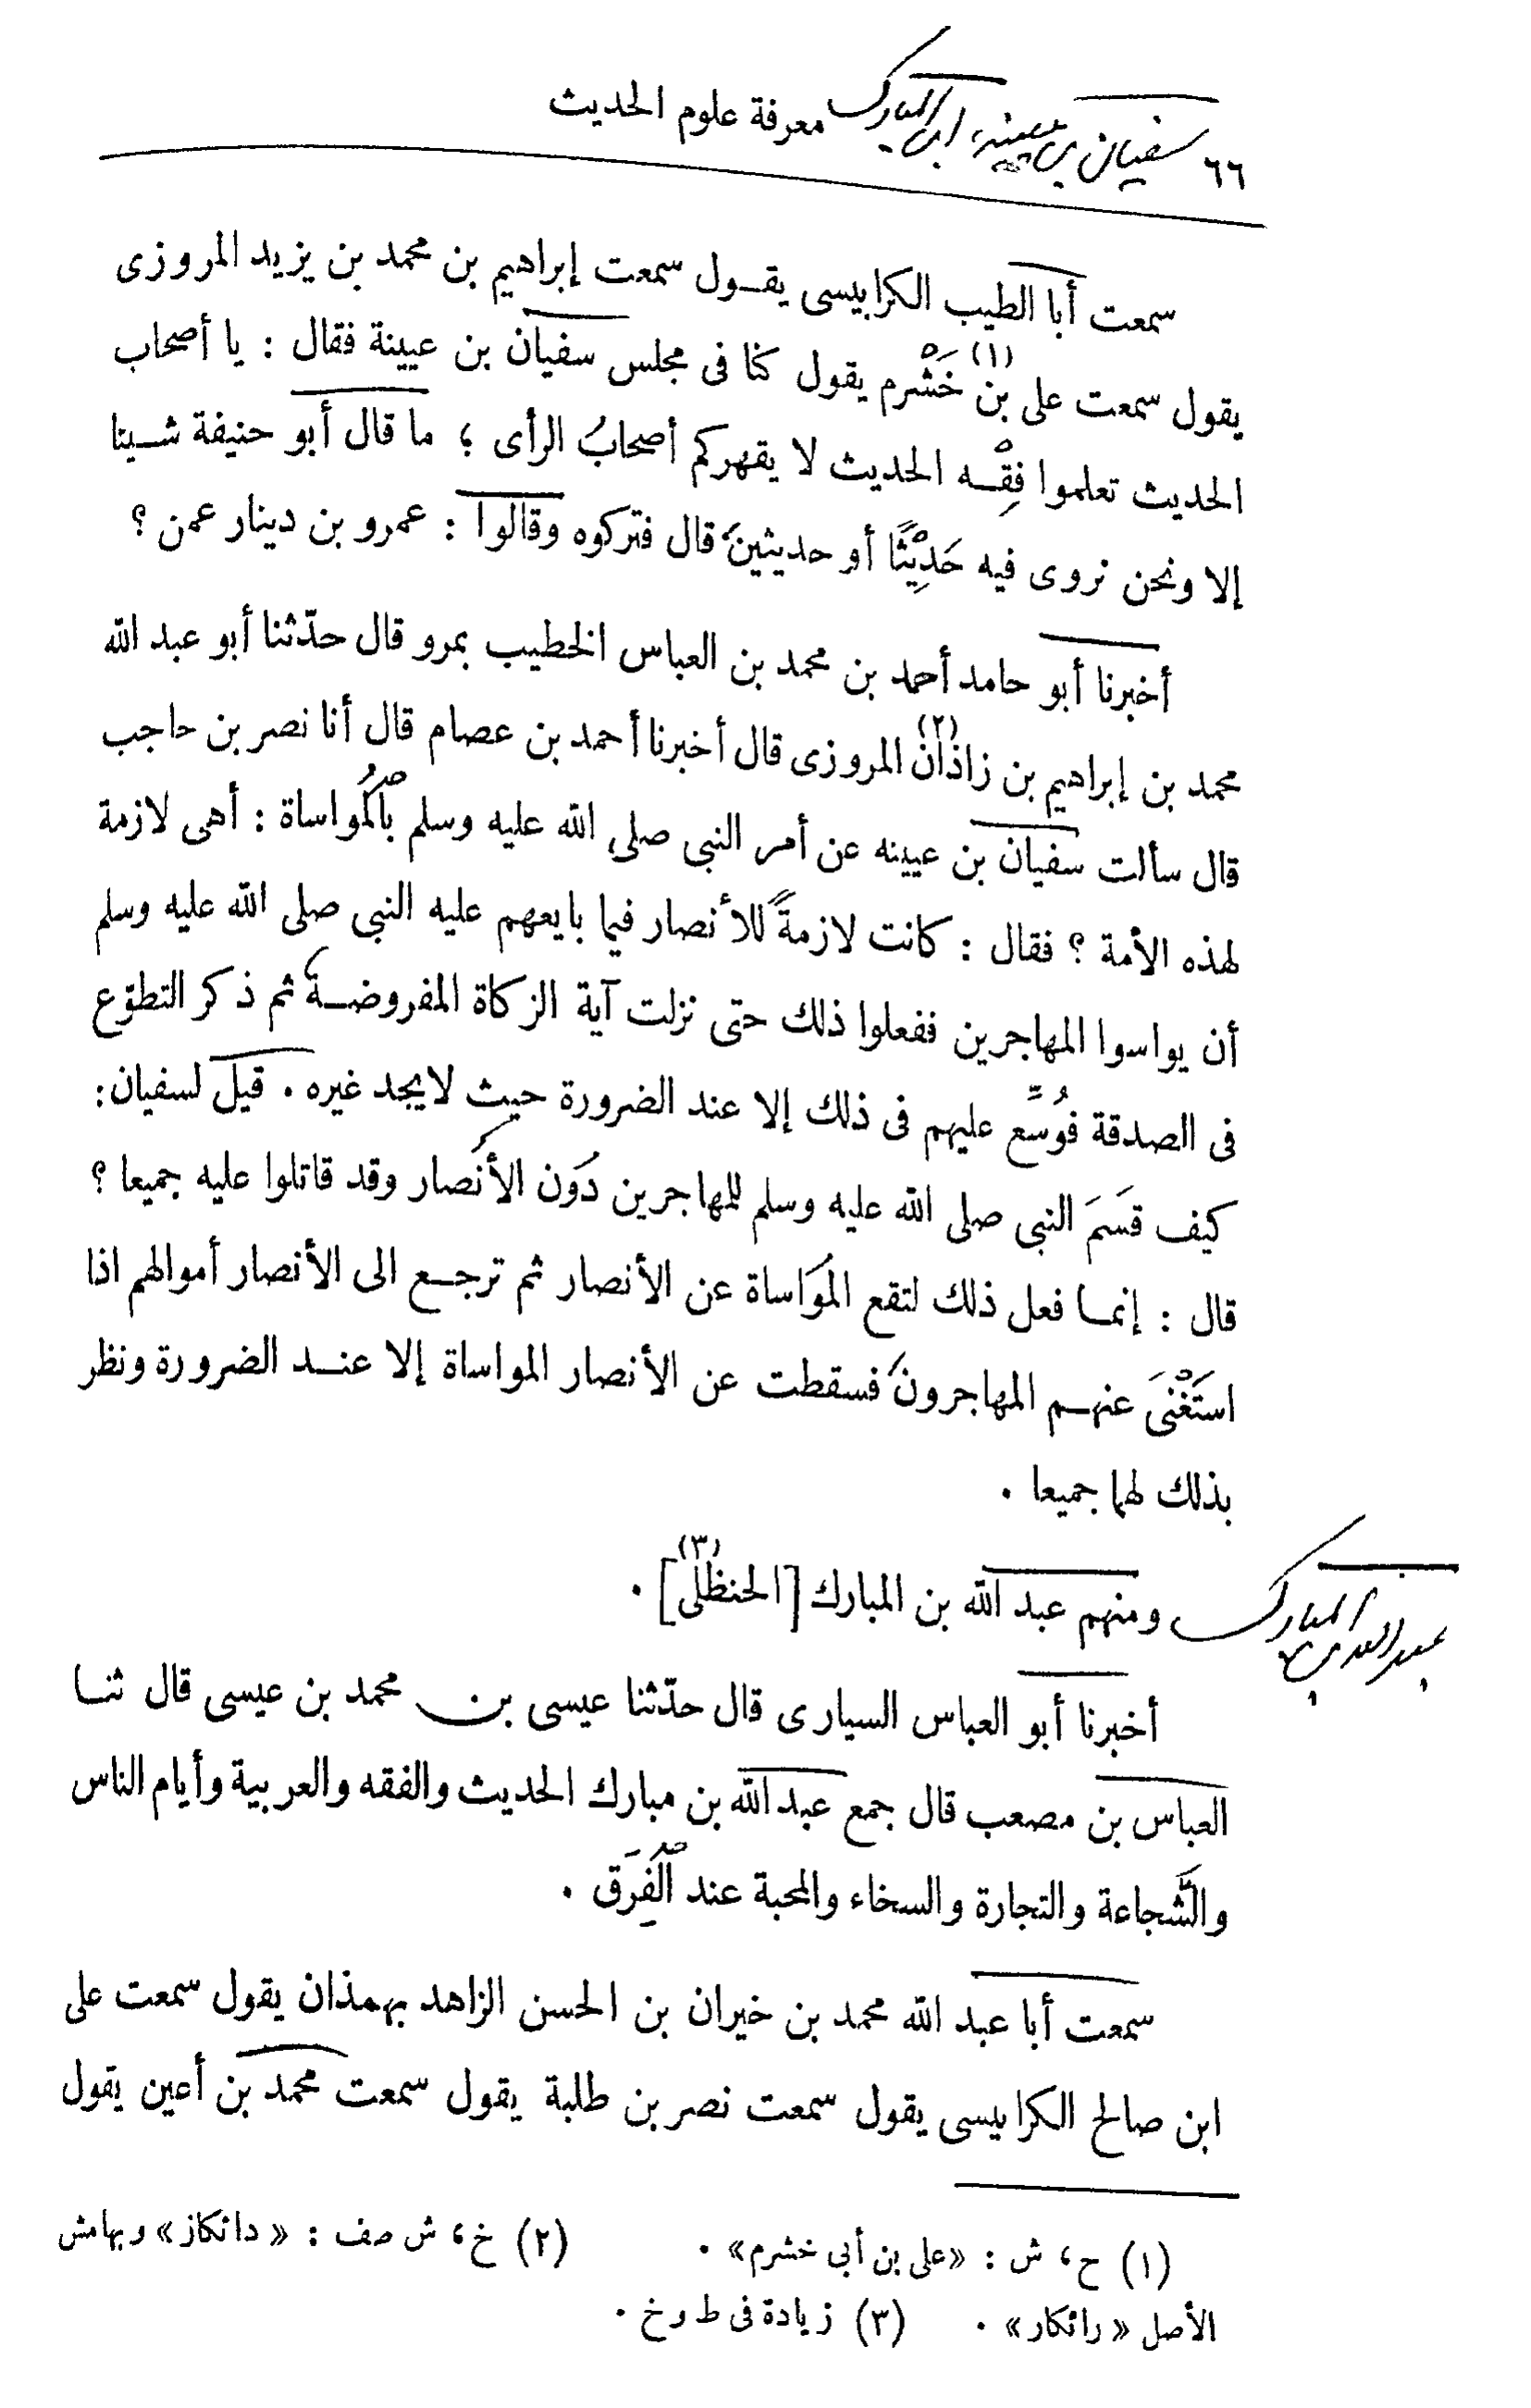 ٦٦ سفيان بن عيينة، ابن المبارك معرفة علوم الحديث
سمعت أبا الطيب الكرابيسى يقول سمعت إبراهيم بن محمد بن يزيد المروزى
يقول سمعت على بن (١) خَشْرم يقول كنا فى مجلس سفيان بن عيينة فقال : يا أصحاب
الحديث تعلموا فِقْه الحديث لا يقهركم أصحابُ الرأى ؛ ما قال أبو حنيفة شيئا
إلا ونحن نروى فيه حَدِيْثًا أو حديثين، قال فتركوه وقالوا : عمرو بن دينار عمن ؟
أخبرنا أبو حامد أحمد بن محمد بن العباس الخطيب بمرو قال حدّثنا أبو عبد الله
محمد بن إبراهيم بن زاذان (٢) المروزى قال أخبرنا أحمد بن عصام قال أنا نصر بن حاجب
قال سألت سفيان بن عيينه عن أمر النبى صلى الله عليه وسلم بالمُواساة : أهى لازمة
لهذه الأمة ؟ فقال : كانت لازمةً للأنصار فيما بايعهم عليه النبى صلى الله عليه وسلم
أن يواسوا المهاجرين ففعلوا ذلك حتى نزلت آية الزكاة المفروضة ثم ذكر التطوّع
فى الصدقة فوُسِّع عليهم فى ذلك إلا عند الضرورة حيث لا يجد غيره . قيل لسفيان :
كيف قسَمَ النبى صلى الله عليه وسلم للمهاجرين دَون الأنصار وقد قاتلوا عليه جميعا ؟
قال : إنما فعل ذلك لتقع المُوَاساة عن الأنصار ثم ترجع الى الأنصار أموالهم اذا
استَغْنَى عنهم المهاجرون، فسقطت عن الأنصار المواساة إلا عند الضرورة ونظر
بذلك لهما جميعا .
عبد الله بن المبارك
ومنهم عبد الله بن المبارك [الحنظلى (٣)] .
أخبرنا أبو العباس السيارى قال حدّثنا عيسى بن محمد بن عيسى قال ثنا
العباس بن مصعب قال جمع عبد الله بن مبارك الحديث والفقه والعربية وأيام الناس
والشَّجاعة والتجارة والسخاء والمحبة عند الْفِرَق .
سمعت أبا عبد الله محمد بن خيران بن الحسن الزاهد بهمذان يقول سمعت على
ابن صالح الكرابيسى يقول سمعت نصر بن طلبة يقول سمعت محمد بن أعين يقول
(١) ح، ش : «على بن أبى خشرم» . (٢) خ، ش صف : «دانكاز» وبهامش
الأصل «رائكار» . (٣) زيادة فى ط وخ .